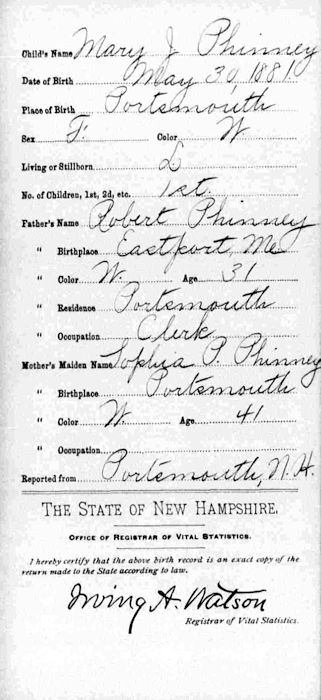 Child's Name Mary J Phinney
Date of Birth May 30, 1881.
Place of Birth Portsmouth
Sex F. Color W
Living or Stillborn L
No. of Children, 1st, 2d, etc. 1st.
Father's Name Robert Phinney
" Birthplace Eastport, Me
" Color W. Age 31
" Residence Portsmouth
" Occupation Clerk
Mother's Maiden Name Sophia P. Phinney
" Birthplace Portsmouth
" Color W. Age 41
" Occupation
Reported from Portsmouth, N.H.
THE STATE OF NEW HAMPSHIRE.
OFFICE OF REGISTRAR OF VITAL STATISTICS.
I hereby certify that the above birth record is an exact copy of the
return made to the State according to law.
Irving A. Watson
Registrar of Vital Statistics.